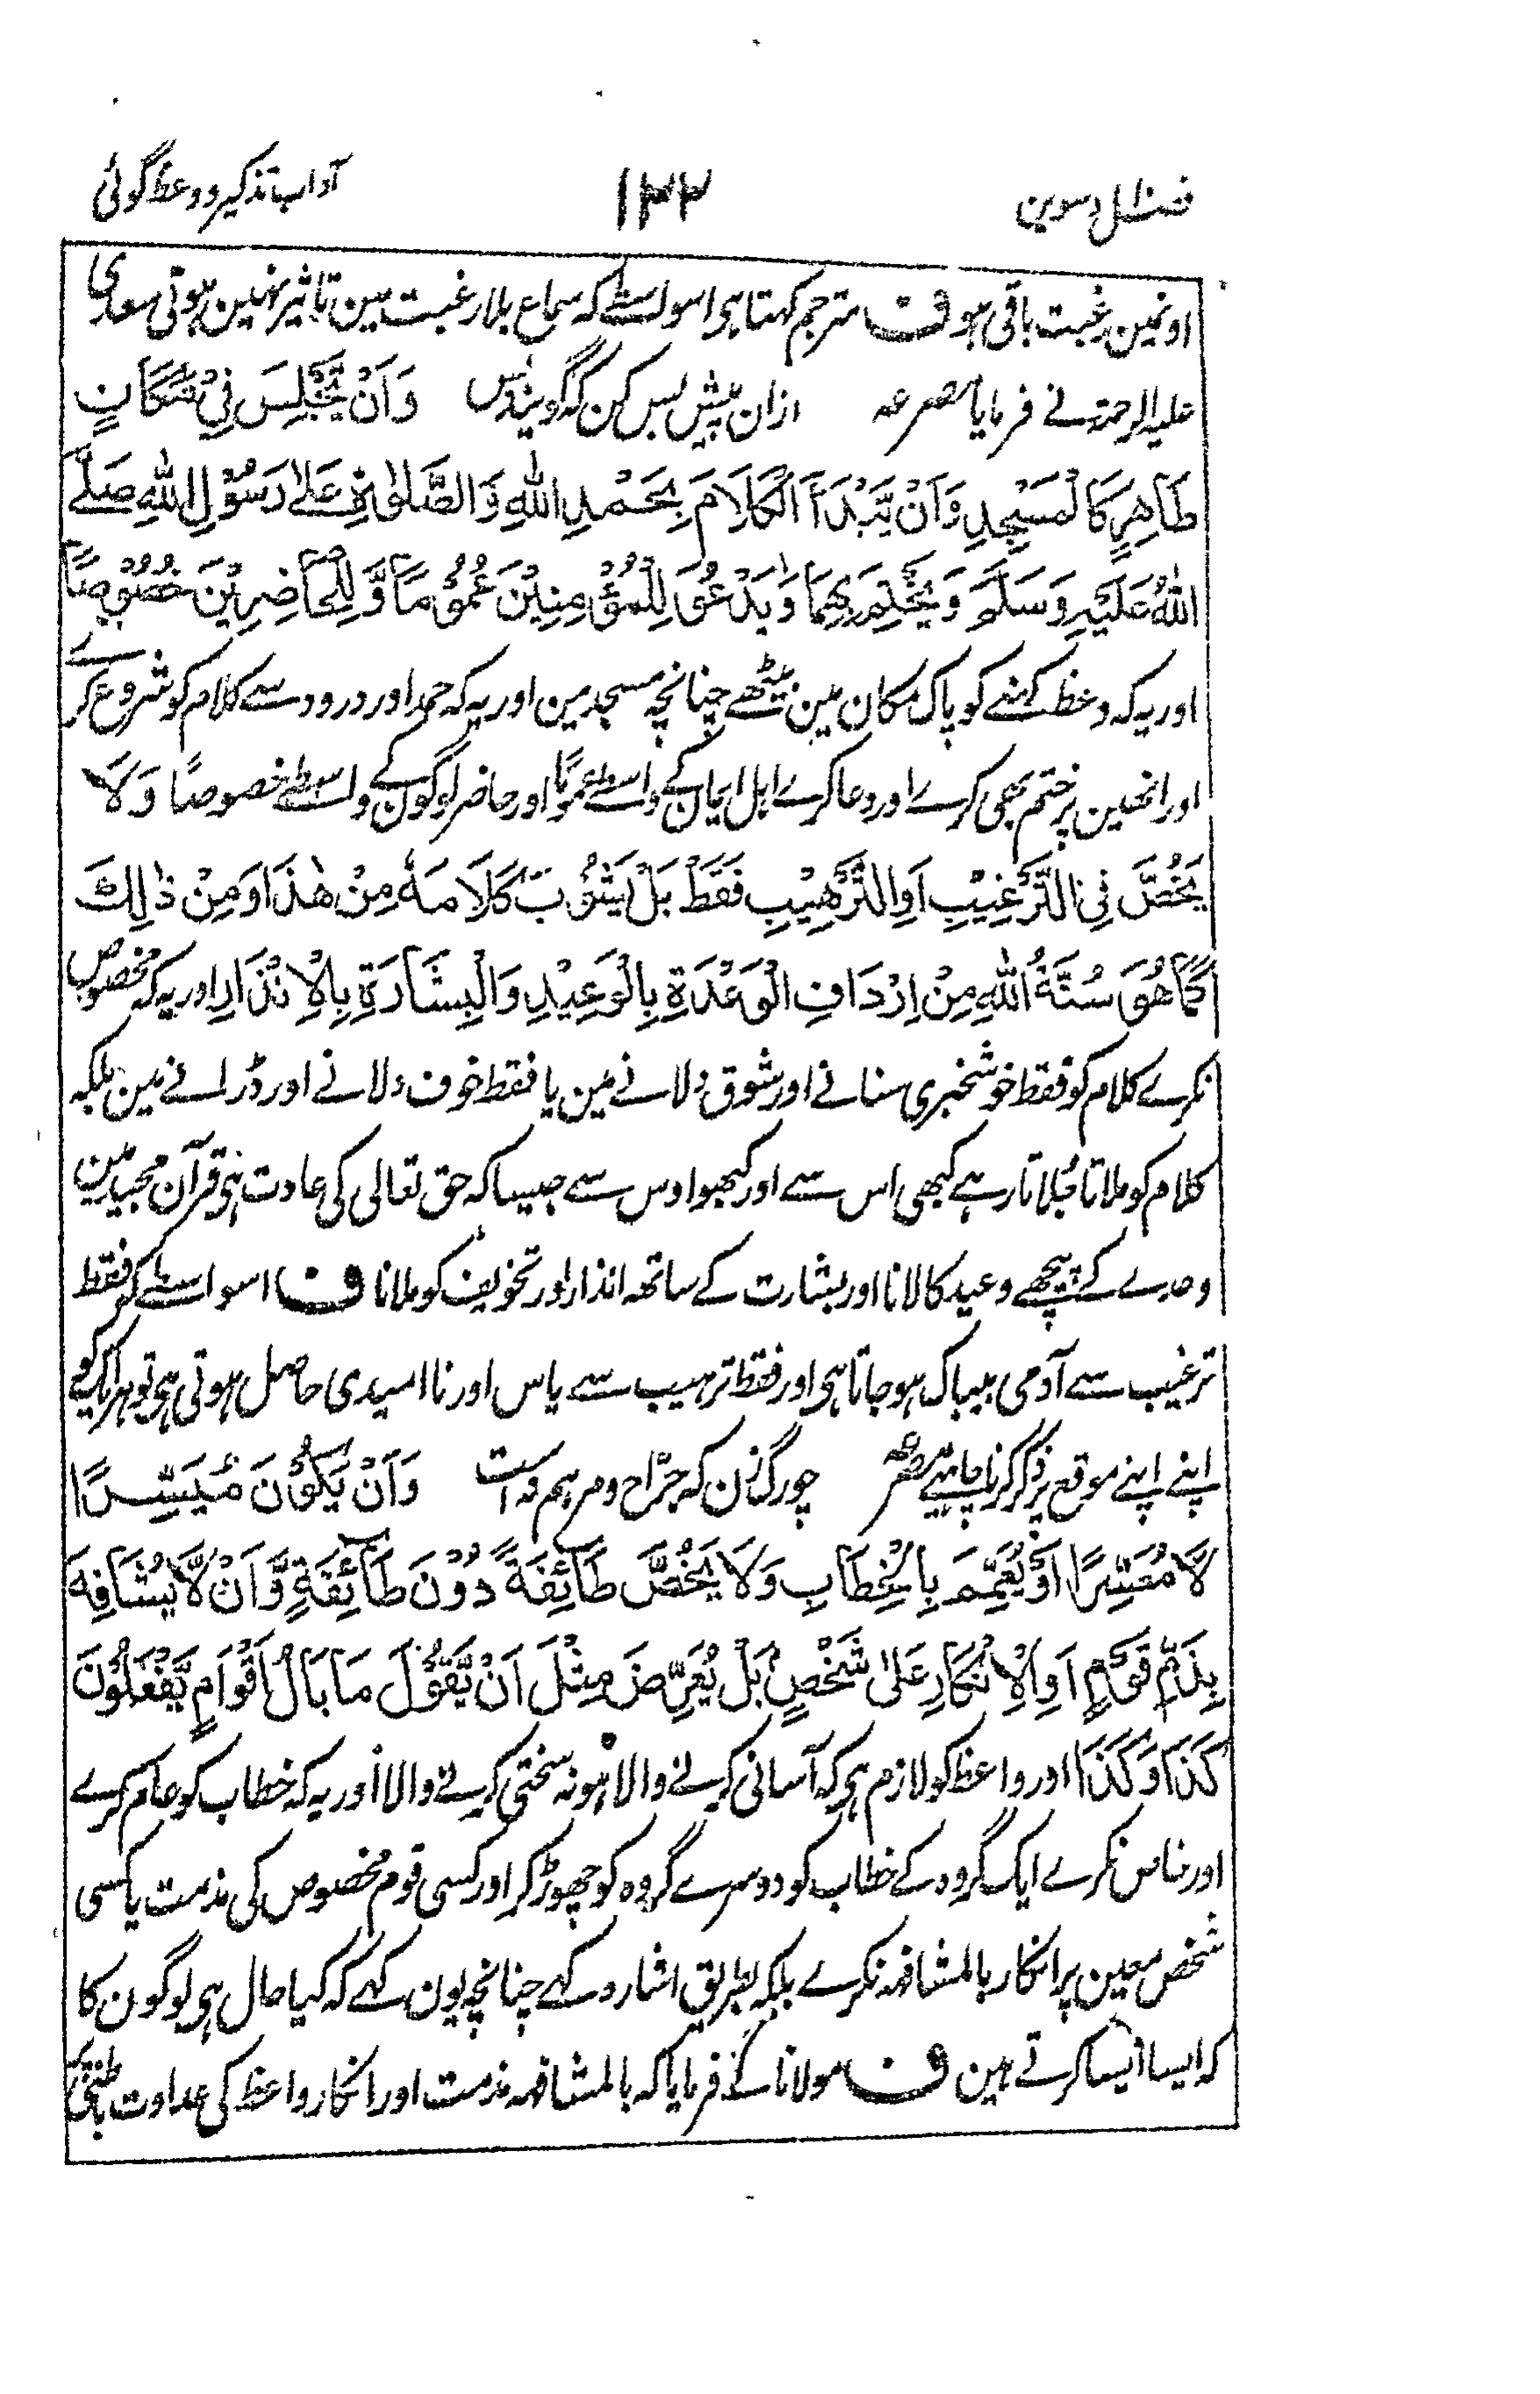 فصل دسوین ۱۲۲ آداب تذکیر و وعظ گوئی
اونمین رغبت باقی ہو ف مترجم کہتا ہی اسواسطے کہ سماع بلا رغبت مین تاثیر نہین ہوتی سعدی
علیہ الرحمۃ نے فرمایا مصرعہ ازان پیش بس کن کہ گویند بس وَاَنْ یَّجْلِسَ فِیْ مَکَانٍ
طَاهِرٍ کَالْمَسْجِدِ وَاَنْ یَّبْدَأَ الْکَلَامَ بِحَمْدِ اللهِ وَالصَّلٰوةِ عَلٰے رَسُوْلِ اللهِ صَلَّے
اللهُ عَلَیْهِ وَسَلَّمَ وَیَخْتِمَ بِهِمَا وَیَدْعُوَ لِلْمُؤْمِنِیْنَ عُمُوْمًا وَّلِلْحَاضِرِیْنَ خُصُوْصًا
اور یہ کہ وعظ کہنے کو پاک مکان مین بیٹھے چنانچہ مسجد مین اور یہ کہ حمد اور درود سے کلام کو شروع کرے
اور انھین پر ختم بھی کرے اور دعا کرے اہل ایمان کے واسطے عموماً اور حاضر لوگون کے واسطے خصوصاً وَلَا
یَخُصَّ فِی التَّرْغِیْبِ اَوِ التَّرْهِیْبِ فَقَطْ بَلْ یَشُوْبَ کَلَامَهٗ مِنْ هٰذَا وَمِنْ ذٰلِكَ
کَمَا هُوَ سُنَّةُ اللهِ مِنْ اِرْدَافِ الْوَعْدَةِ بِالْوَعِیْدِ وَالْبِشَارَةِ بِالْاِنْذَارِ اور یہ کہ مخصوص
نکرے کلام کو فقط خوشخبری سنانے اور شوق دلانے مین یا فقط خوف دلانے اور ڈرانے مین بلکہ
کلام کو ملاتا جُلاتا رہے کبھی اس سے اور کبھو اوس سے جیسا کہ حق تعالی کی عادت ہی قرآن مجید مین
وعدے کے پیچھے وعید کا لانا اور بشارت کے ساتھ انذار اور تخویف کو ملانا ف اسواسطے کہ فقط
ترغیب سے آدمی بیباک ہو جاتا ہی اور فقط ترہیب سے یاس اور نا امیدی حاصل ہوتی ہی تو ہر ایک کو
اپنے اپنے موقع پر ذکر کرنا چاہیے مصرعہ چو رگ زن کہ جرّاح و مرہم نہ است وَاَنْ یَّکُوْنَ مُیَسِّرًا
لَّا مُعَسِّرًا وَّیُعَمِّمَ بِالْخِطَابِ وَلَا یَخُصَّ طَائِفَةً دُوْنَ طَائِفَةٍ وَّاَنْ لَّا یُشَافِهَ
بِذَمِّ قَوْمٍ اَوِ الْاِنْکَارِ عَلٰی شَخْصٍ بَلْ یُعَرِّضَ مِثْلَ اَنْ یَّقُوْلَ مَا بَالُ اَقْوَامٍ یَّفْعَلُوْنَ
کَذَا وَکَذَا اور واعظ کو لازم ہی کہ آسانی کرنے والا ہو نہ سختی کرنے والا اور یہ کہ خطاب کو عام کرے
اور خاص نکرے ایک گروہ کے خطاب کو دوسرے گروہ کو چھوڑ کر اور کسی قوم مخصوص کی مذمت یا کسی
شخص معین پر انکار بالمشافہہ نکرے بلکہ بطریق اشارہ کہے چنانچہ یون کہے کہ کیا حال ہی لوگون کا
کہ ایسا ایسا کرتے ہین ف مولانا نے فرمایا کہ بالمشافہہ مذمت اور انکار واعظ کی عداوت